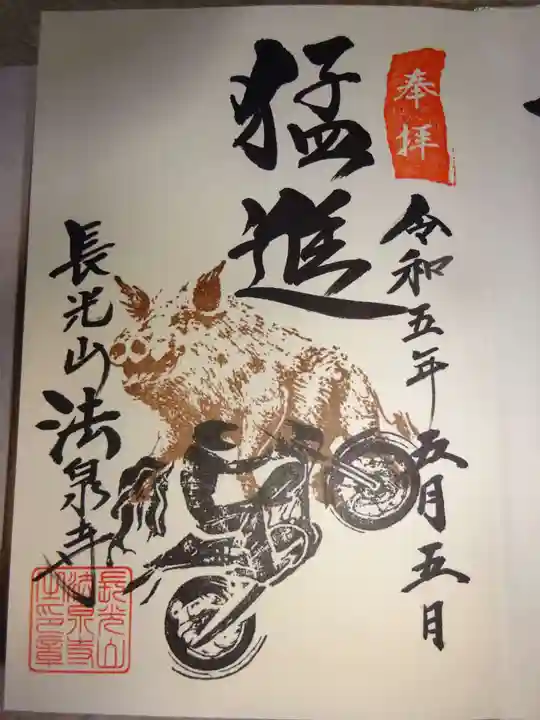 奉拝
令和五年五月五日
猛進
長光山法泉寺
長光山
法泉寺
之印章